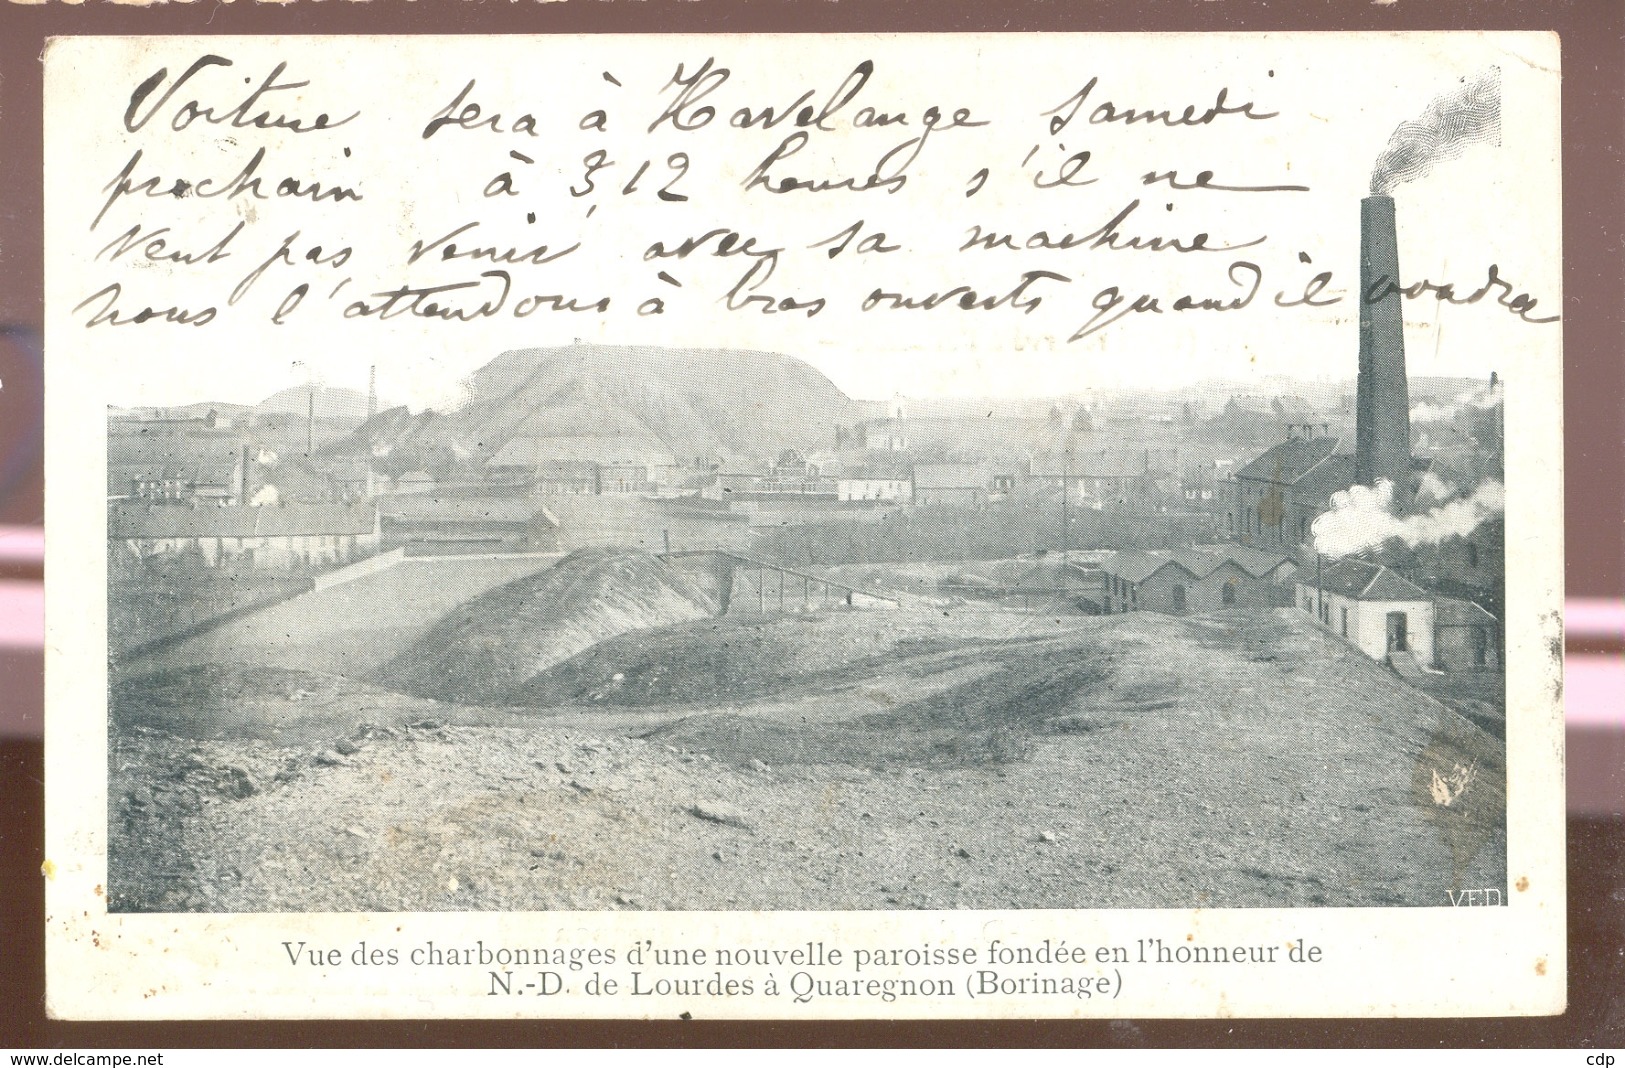 Voiture sera à Havelange samedi
prochain à 3,12 heures s'il ne
veut pas venir avec sa machine
nous l'attendons à bras ouverts quand il voudra
VED
Vue des charbonnages d'une nouvelle paroisse fondée en l'honneur de
N.-D. de Lourdes à Quaregnon (Borinage)
www.delcampe.net
cdp